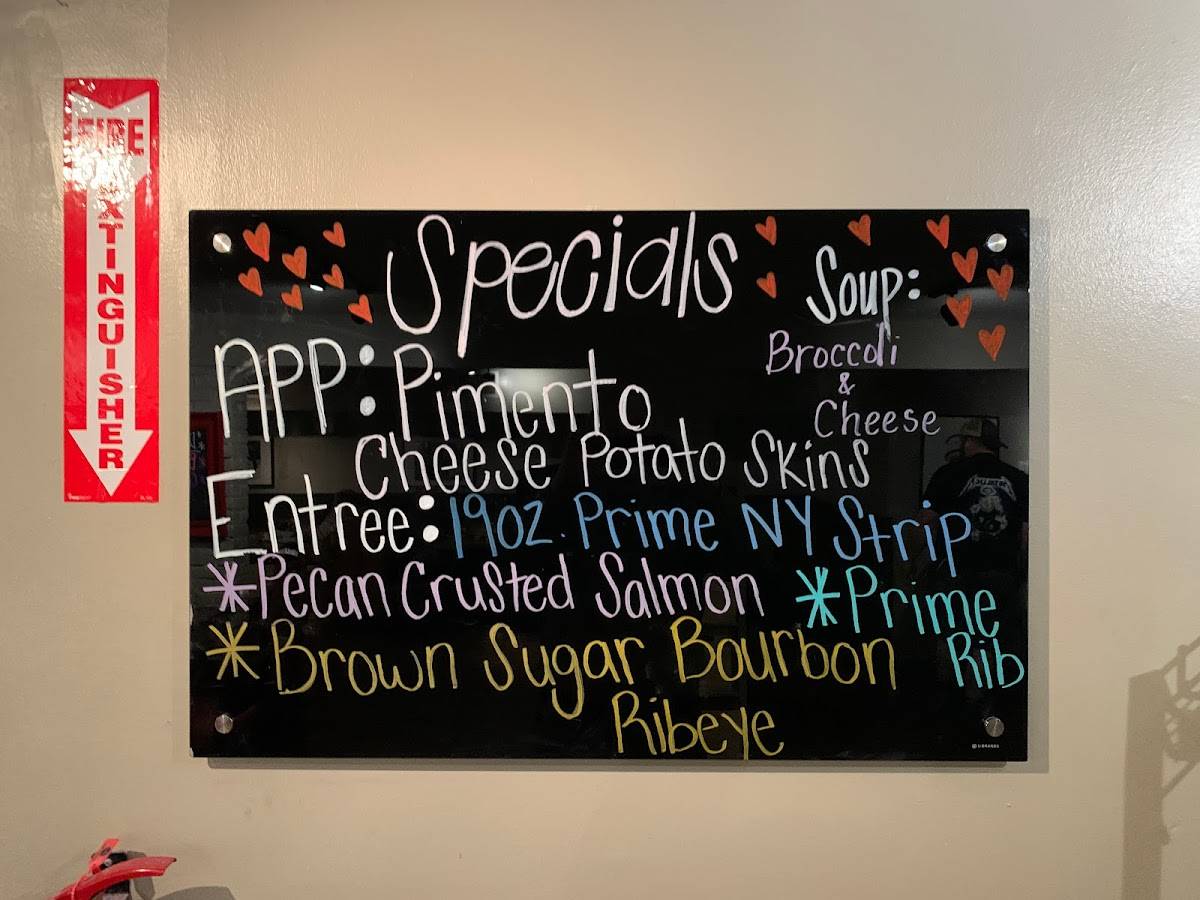 FIRE
EXTINGUISHER
Specials
Soup:
Broccoli
&
Cheese
APP: Pimento
Cheese Potato Skins
Entree: 19oz. Prime NY Strip
*Pecan Crusted Salmon
*Prime
Rib
*Brown Sugar Bourbon
Ribeye